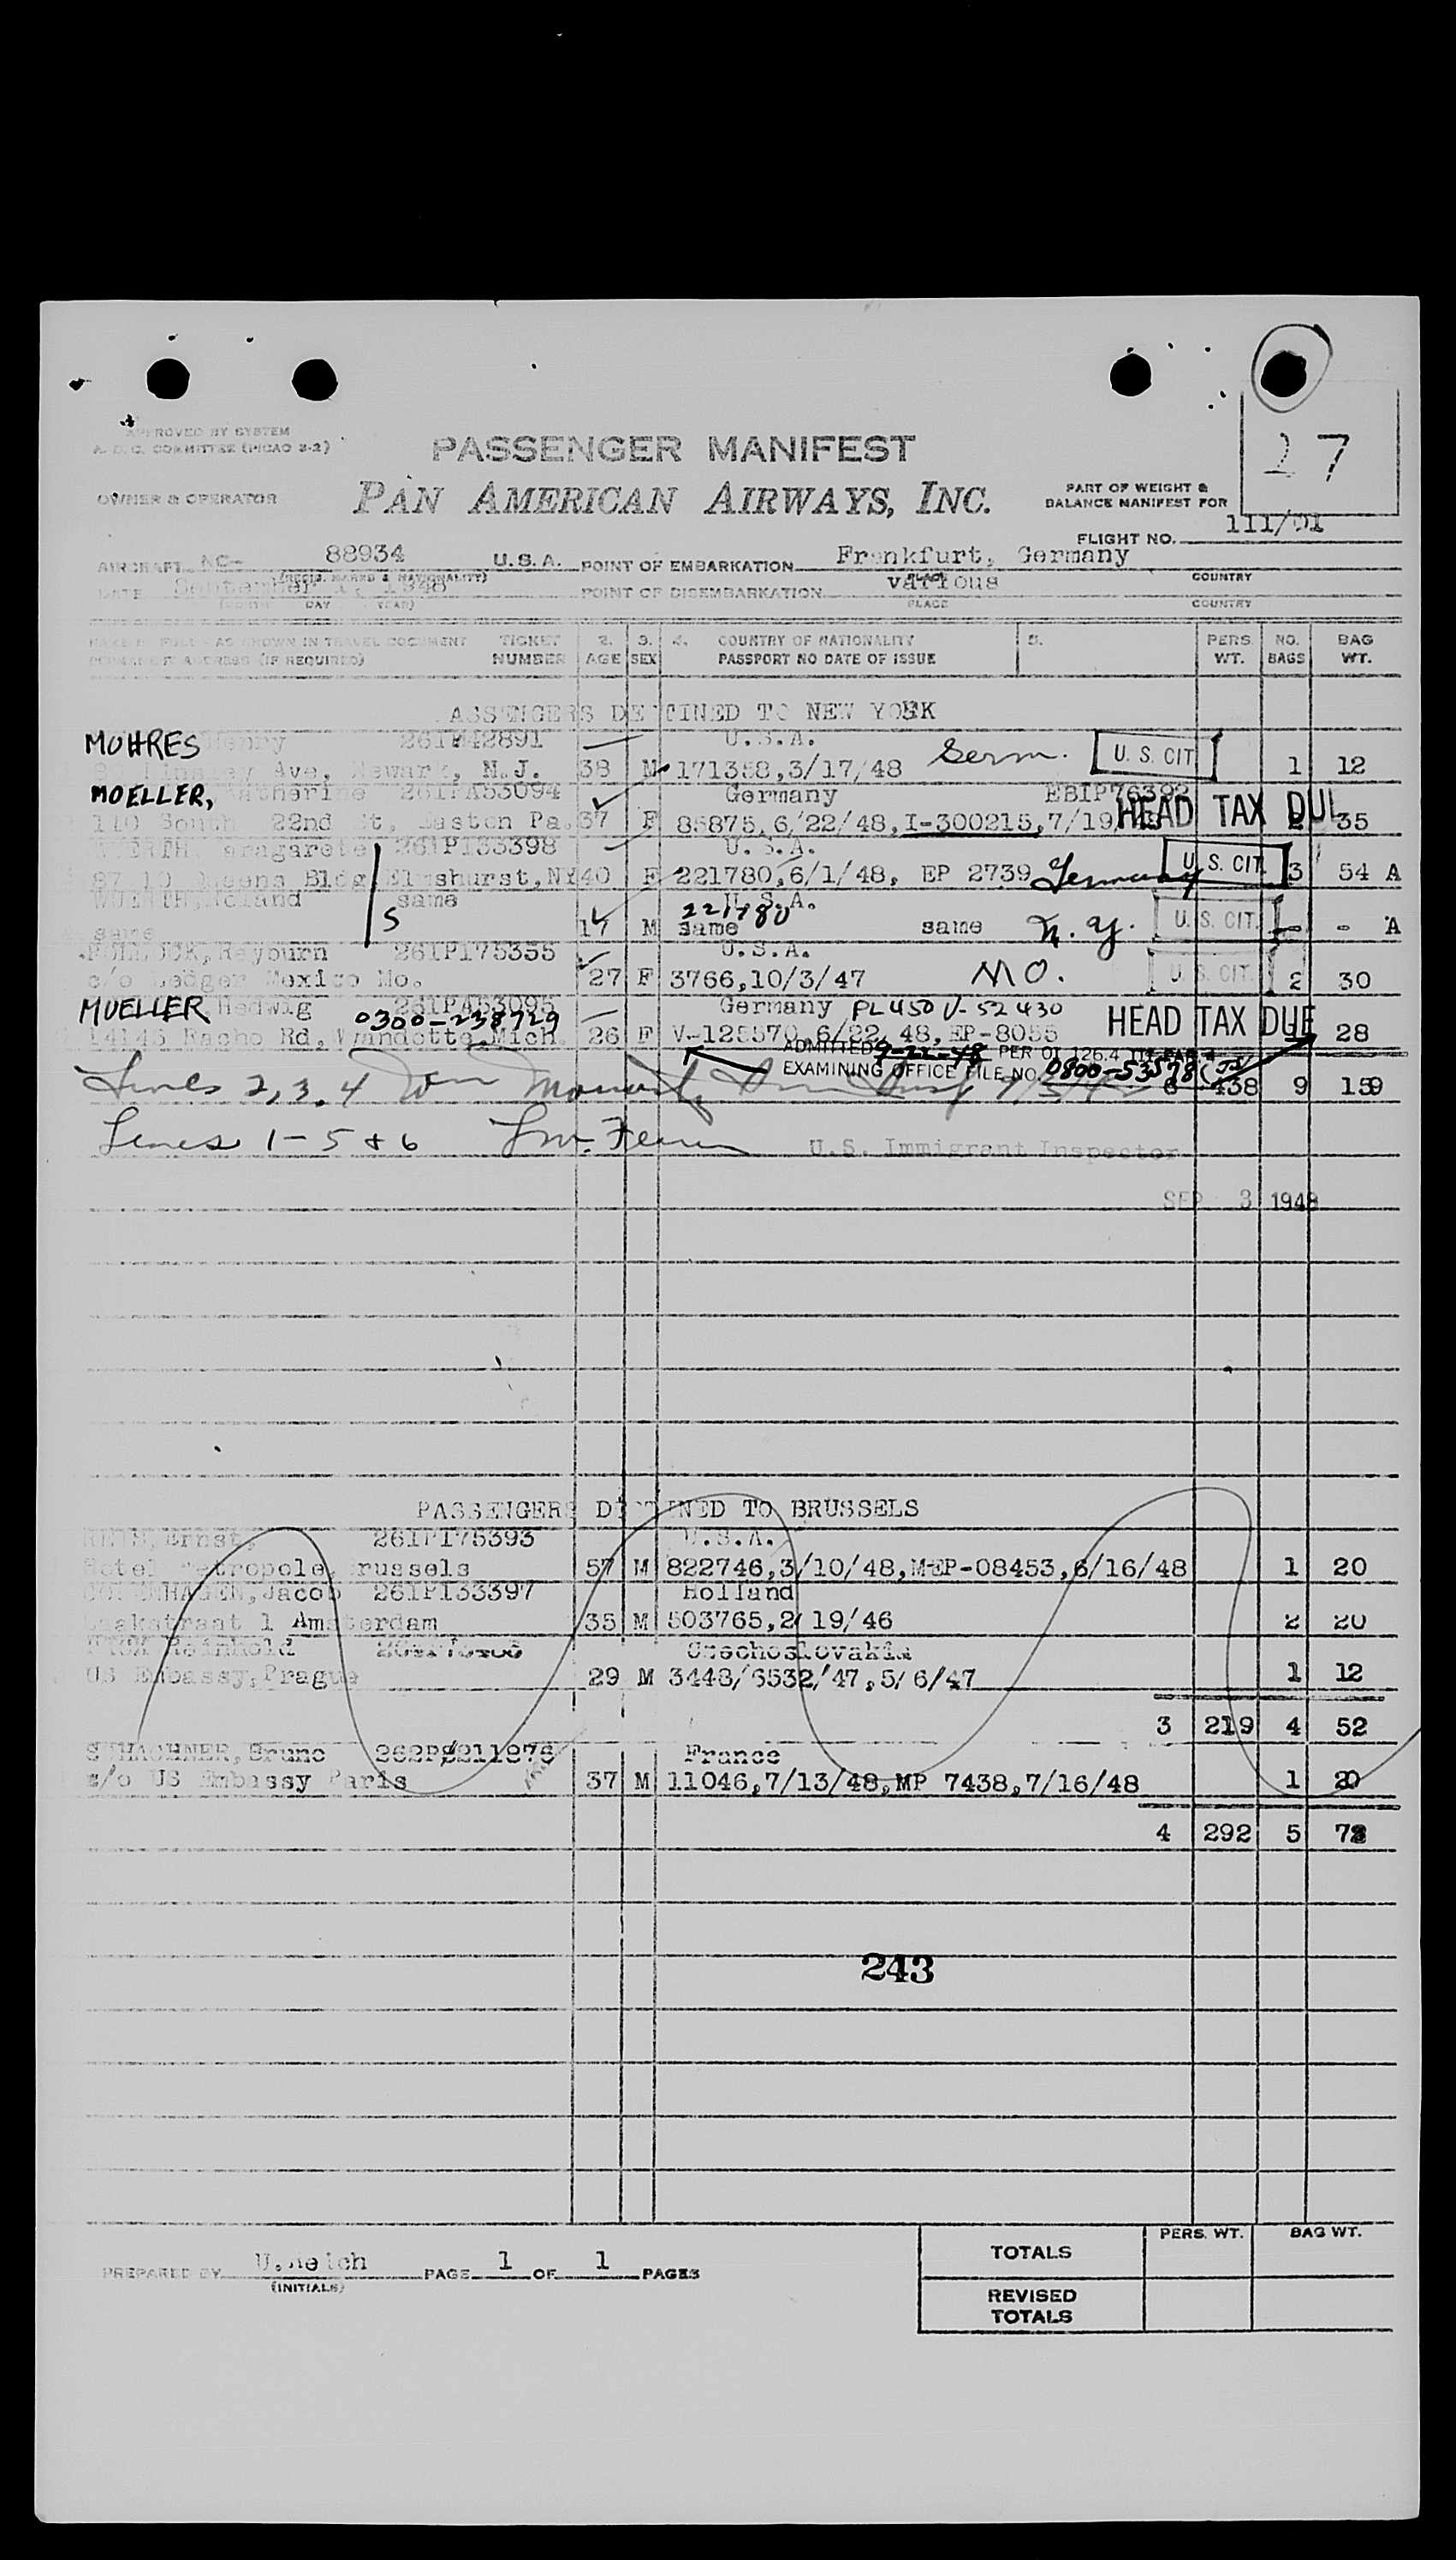 27
APPROVED BY SYSTEM
A.O.C. COMMITTEE (PICAO 2-2)
PASSENGER MANIFEST
OWNER & OPERATOR PAN AMERICAN AIRWAYS, INC.
PART OF WEIGHT &
BALANCE MANIFEST FOR
FLIGHT NO. 111/01
AIRCRAFT NC- 88934 U.S.A. POINT OF EMBARKATION Frankfurt, Germany
(REGIS. MARKS & NATIONALITY) PLACE COUNTRY
DATE September 1, 1948 POINT OF DISEMBARKATION various
(MONTH DAY YEAR) PLACE COUNTRY
NAME IN FULL - AS SHOWN IN TRAVEL DOCUMENT TICKET 2. 3. 4. COUNTRY OF NATIONALITY 5. PERS. NO. BAG
PERMANENT ADDRESS (IF REQUIRED) NUMBER AGE SEX PASSPORT NO DATE OF ISSUE WT. BAGS WT.
PASSENGERS DESTINED TO NEW YORK
MOHRES Henry 261P142891 U.S.A.
Ave, Newark, N.J. 38 M 171358,3/17/48 Germ. U. S. CIT 1 12
MOELLER, Katherine 261PA53094 Germany EBIP76392
110 South 22nd St, Easton Pa. 37 F 85875,6/22/48,I-300215,7/19 HEAD TAX DUE 2 35
WUERTH, Maragarete 261P133398 U.S.A.
87 10 Queens Bldg Elmshurst,NY 40 F 221780,6/1/48, EP 2739 Germany U. S. CIT. 3 54 A
WUERTH,Roland same U.S.A.
same S 17 M same 221780 same N.Y. U. S. CIT. - - A
Rayburn 261P175355 U.S.A.
c/o Ledger Mexico Mo. 27 F 3766,10/3/47 MO. U. S. CIT. 2 30
MUELLER Hedwig 261PA53095 Germany PL 450 V-52430
0300-238729
14145 Racho Rd, Wyandotte,Mich. 26 F V-125570,6/22/48,EP-8055 HEAD TAX DUE 28
ADMITTED 9-22-48 PER OI 126.4
EXAMINING OFFICE FILE NO. 0800-53578
Lines 2,3,4 6 438 9 159
Lines 1-5 & 6
U.S. Immigrant Inspector
SEP 3 1948
PASSENGERS DESTINED TO BRUSSELS
Ernst, 261P175393 U.S.A.
Hotel Metropole, Brussels 57 M 822746,3/10/48,MEP-08453,6/16/48 1 20
Jacob 261P133397 Holland
1 Amsterdam 35 M 503765,2/19/46 2 20
Reinhold Czechoslovakia
US Embassy,Prague 29 M 3448/6532/47,5/6/47 1 12
3 219 4 52
SCHACHNER,Bruno 262P211276 France
c/o US Embassy Paris 37 M 11046,7/13/48,MP 7438,7/16/48 1 20
4 292 5 72
243
PREPARED BY (INITIALS) PAGE 1 OF 1 PAGES
PERS. WT. BAG WT.
TOTALS
REVISED
TOTALS